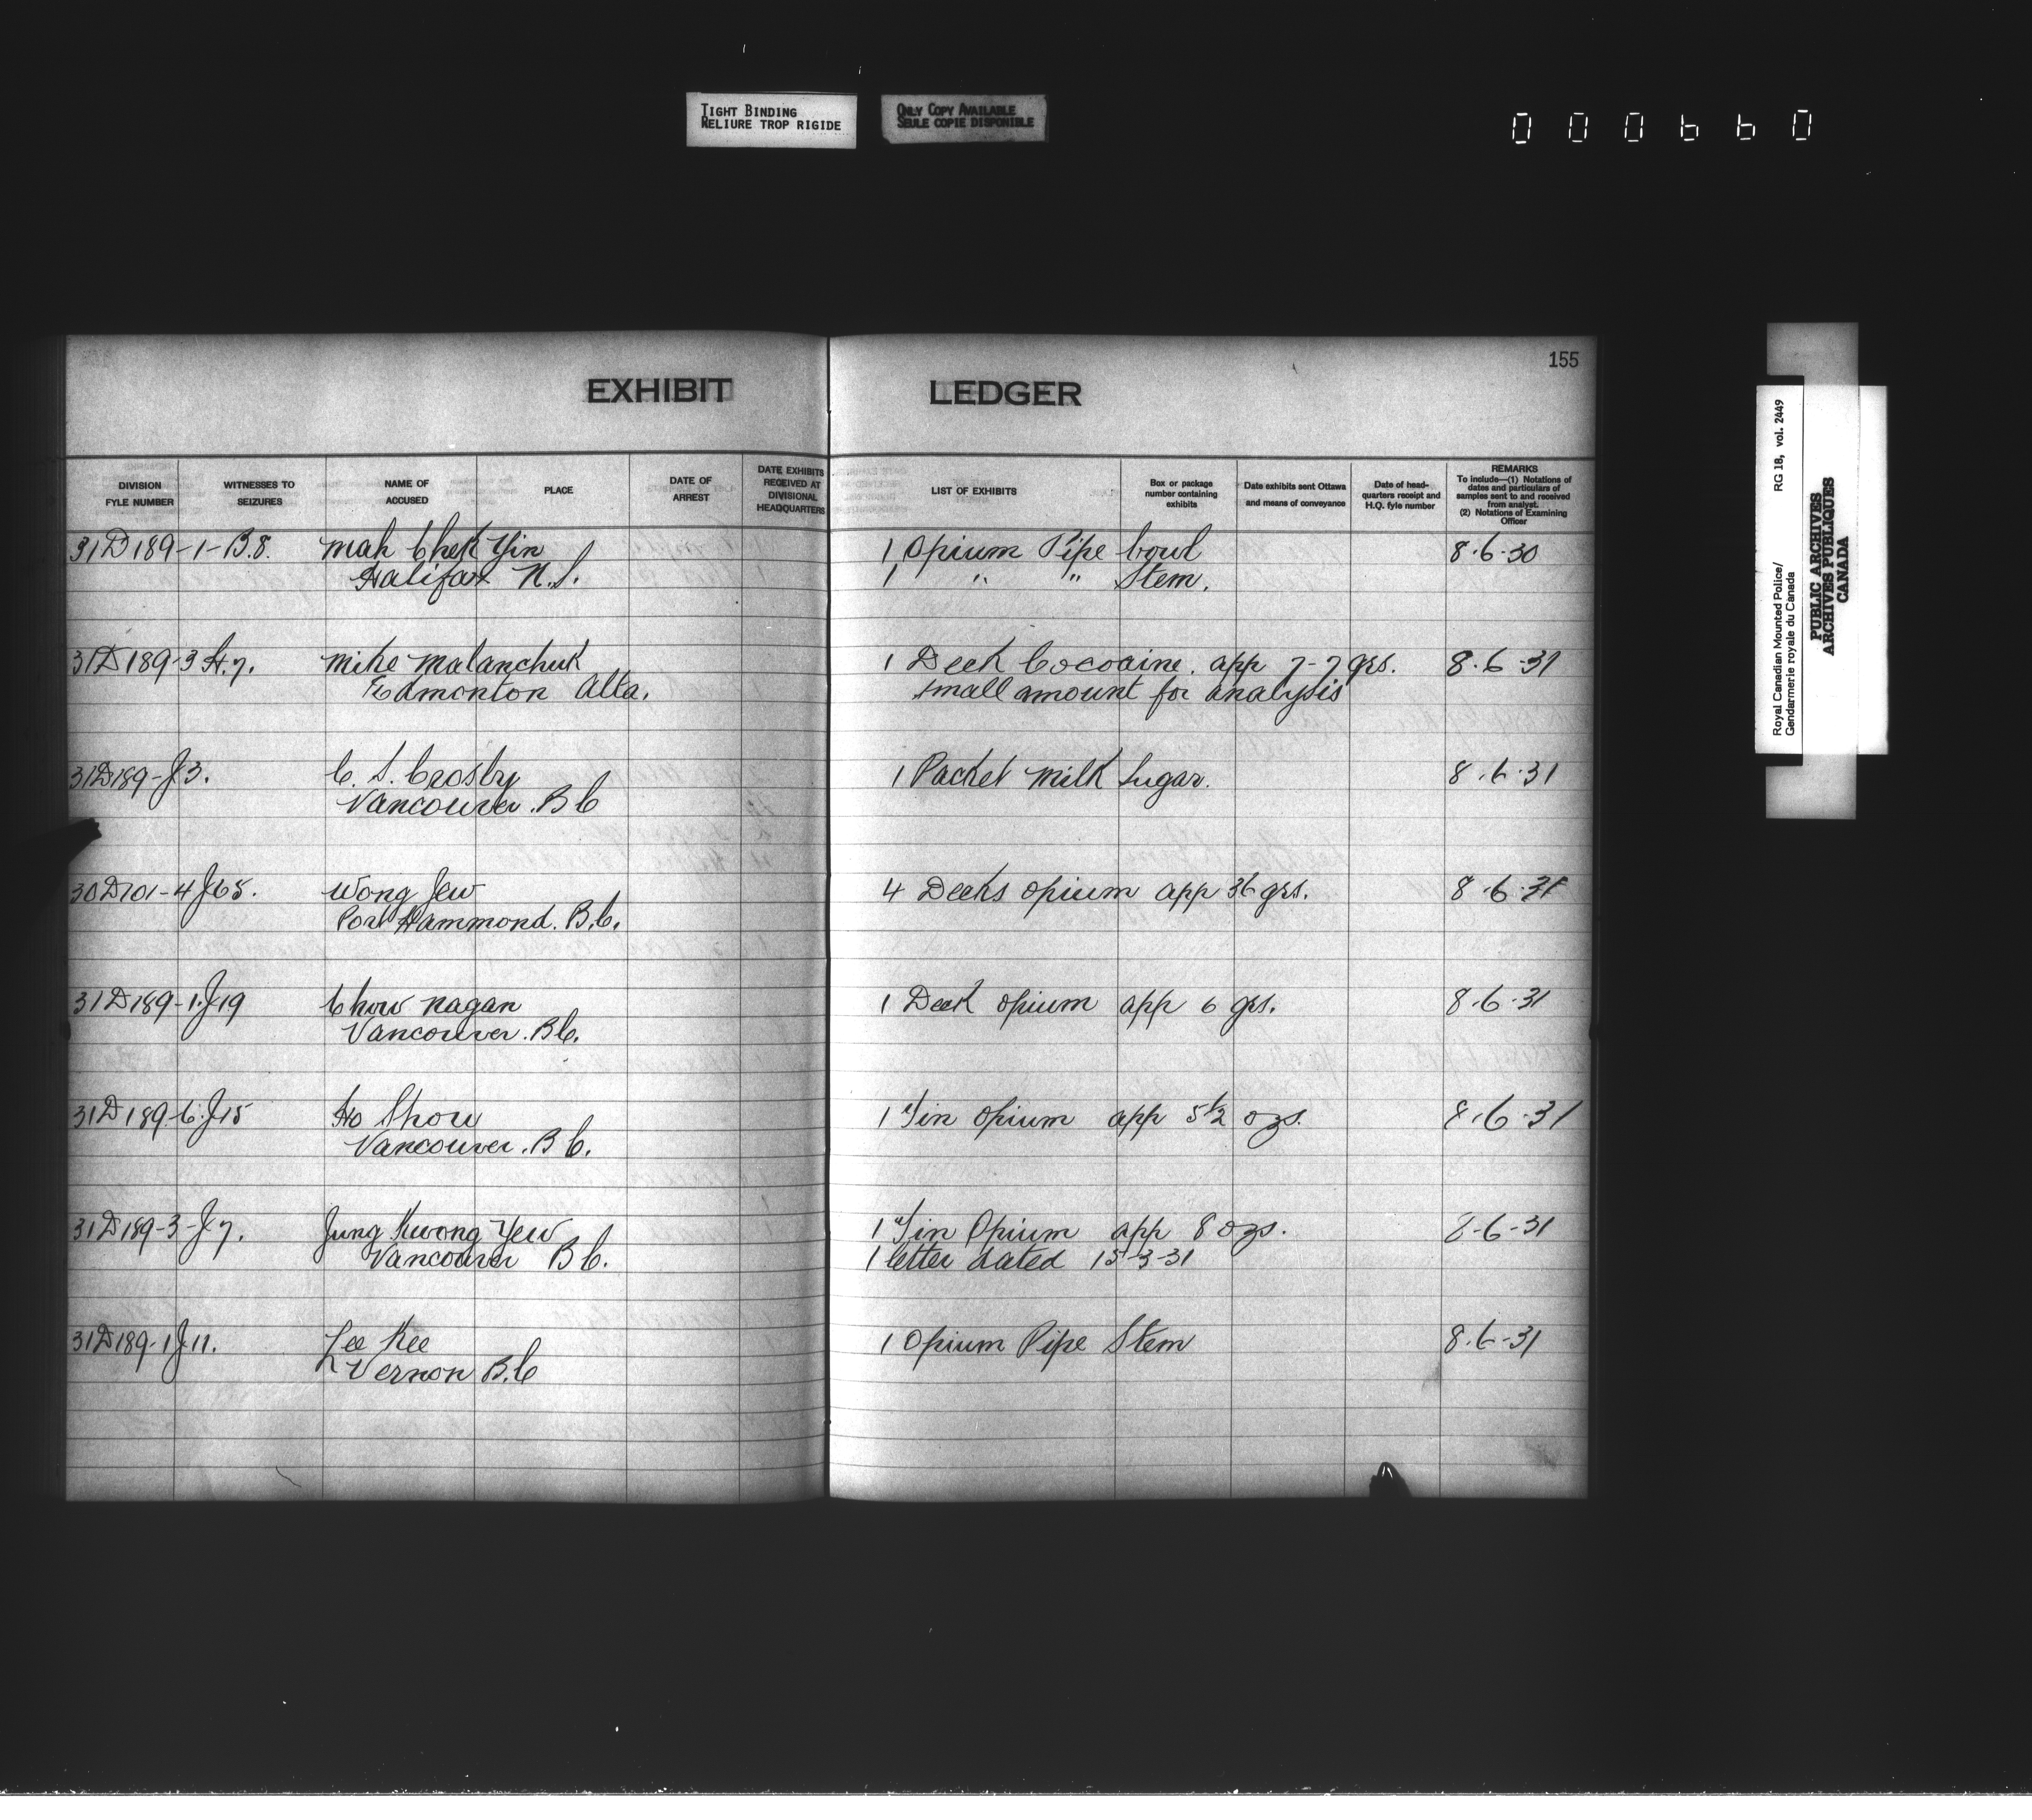 TIGHT BINDING
RELIURE TROP RIGIDE
ONLY COPY AVAILABLE
SEULE COPIE DISPONIBLE
000660
155
EXHIBIT LEDGER
DIVISION FYLE NUMBER
WITNESSES TO SEIZURES
NAME OF ACCUSED
PLACE
DATE OF ARREST
DATE EXHIBITS RECEIVED AT DIVISIONAL HEADQUARTERS
LIST OF EXHIBITS
Box or package number containing exhibits
Date exhibits sent Ottawa and means of conveyance
Date of head-quarters receipt and H.Q. fyle number
REMARKS
To include—(1) Notations of dates and particulars of samples sent to and received from analyst.
(2) Notations of Examining Officer
31D189-1-B.8. Mah Chek Yin 1 Opium Pipe bowl 8-6-30
Halifax N.S. 1 " " Stem.
31D189-3 H.7. Mike Malanchuk 1 Deck Cocoaine. app 7-7 grs. 8-6-31
Edmonton Alta. small amount for analysis
31D189-J3. C. S. Crosby 1 Packet Milk Sugar. 8-6-31
Vancouver. B C
30D101-4J65. Wong Jew 4 Decks opium app 36 grs. 8-6-31
Port Hammond. B.C.
31D189-1.J19 Chow Nagan 1 Deck opium app 6 grs. 8-6-31
Vancouver. BC.
31D189-6.J15 Ho Show 1 Tin opium app 5½ ozs. 8-6-31
Vancouver. B C.
31D189-3-J7. Jung Kwong Yew 1 Tin Opium app 8 ozs. 8-6-31
Vancouver B C. 1 letter dated 15-3-31
31D189-1J11. Lee Kee 1 Opium Pipe Stem 8-6-31
Vernon B.C
Royal Canadian Mounted Police/ RG 18, vol. 2449
Gendarmerie royale du Canada
PUBLIC ARCHIVES
ARCHIVES PUBLIQUES
CANADA